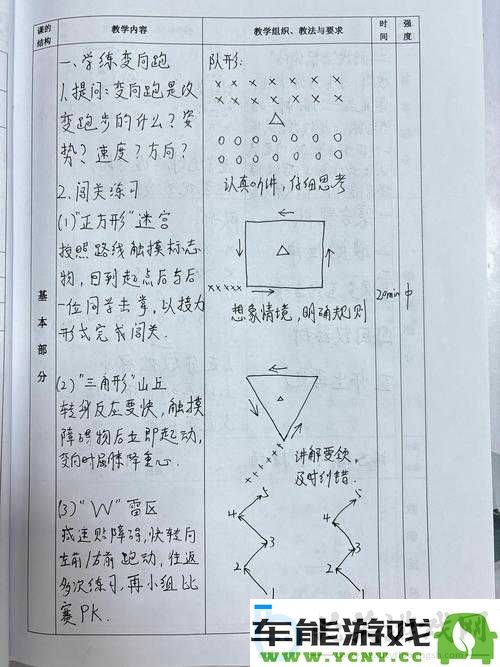 课的
结构
教学内容
教学组织、教法与要求
时
间
强
度
一、学练变向跑
1.提问:变向跑是改
变跑步的什么?姿
势?速度?方向?
2.闯关练习
(1)"正方形"迷宫
按照路线触摸标志
物,回到起点后与后
一位同学击掌,以接力
形式完成闯关.
(2)"三角形"山丘
转身反应要快,触摸
障碍物后立即起动,
变向时屈膝降重心.
(3)"W"雷区
减速贴障碍,快转向
左前/右前跑动,往返
多次练习,再小组比
赛PK.
基
本
部
分
队形:
x x x x x x x
x x x x x x x
o o o o o o o
o o o o o o o
认真听讲,仔细思考
xxxxx
想象情境,明确规则
xxxxxx
讲解要领,
及时纠错.
5
4
3
2
1
5
4
3
2
1
20min
中
车能游戏
WWW.YCNY.CC